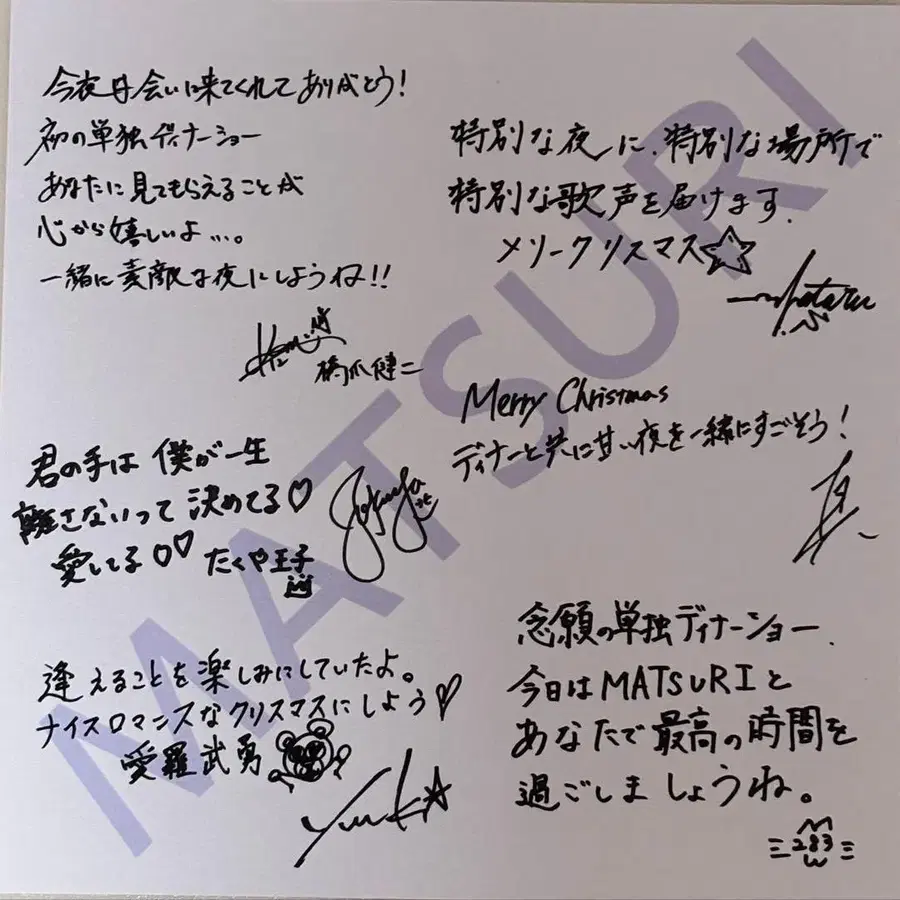 今夜は会いに来てくれてありがとう!
初の単独ディナーショー
あなたに見てもらえることが
心から嬉しいよ…。
一緒に素敵な夜にしようね!!
橋爪健二
特別な夜に、特別な場所で
特別な歌声を届けます.
メリークリスマス☆
Merry Christmas
ディナーと共に甘い夜を一緒にすごそう!
君の手は 僕が一生
離さないって 決めてる♡
愛してる♡♡ たくや王子
逢えることを楽しみにしていたよ。
ナイスロマンスなクリスマスにしよう♡
愛羅武勇
Yuuki☆
念願の単独ディナーショー.
今日はMATSURIと
あなたで最高の時間を
過ごしましょうね。
283
MATSURI